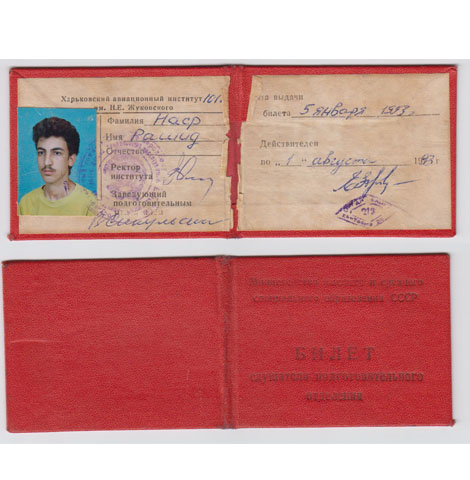 Харьковский авиационный институт 101.
им. Н.Е. Жуковского
Фамилия Наср
Имя Рашид
Отчество
Ректор
института
Заведующий
подготовительным
выдачи
билета 5 января 1983 г.
Действителен
по „1” августа 1983 г.
Министерство высшего и среднего
специального образования СССР
БИЛЕТ
слушателя подготовительного
отделения